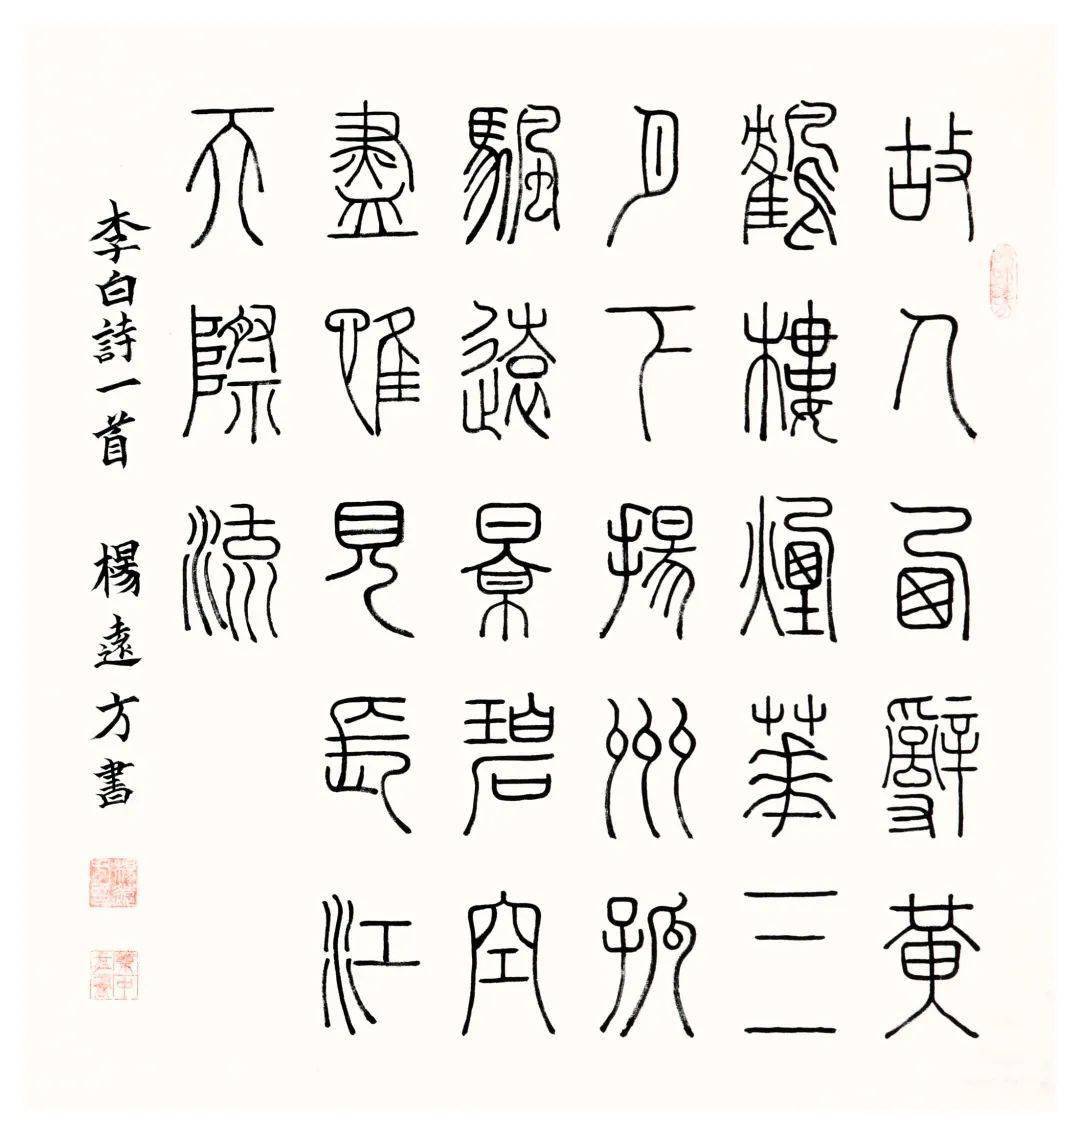 故人西辭黃
鶴樓煙華三
月下揚州孤
颿遠景碧空
盡惟見長江
天際流
李白詩一首 楊遠方書